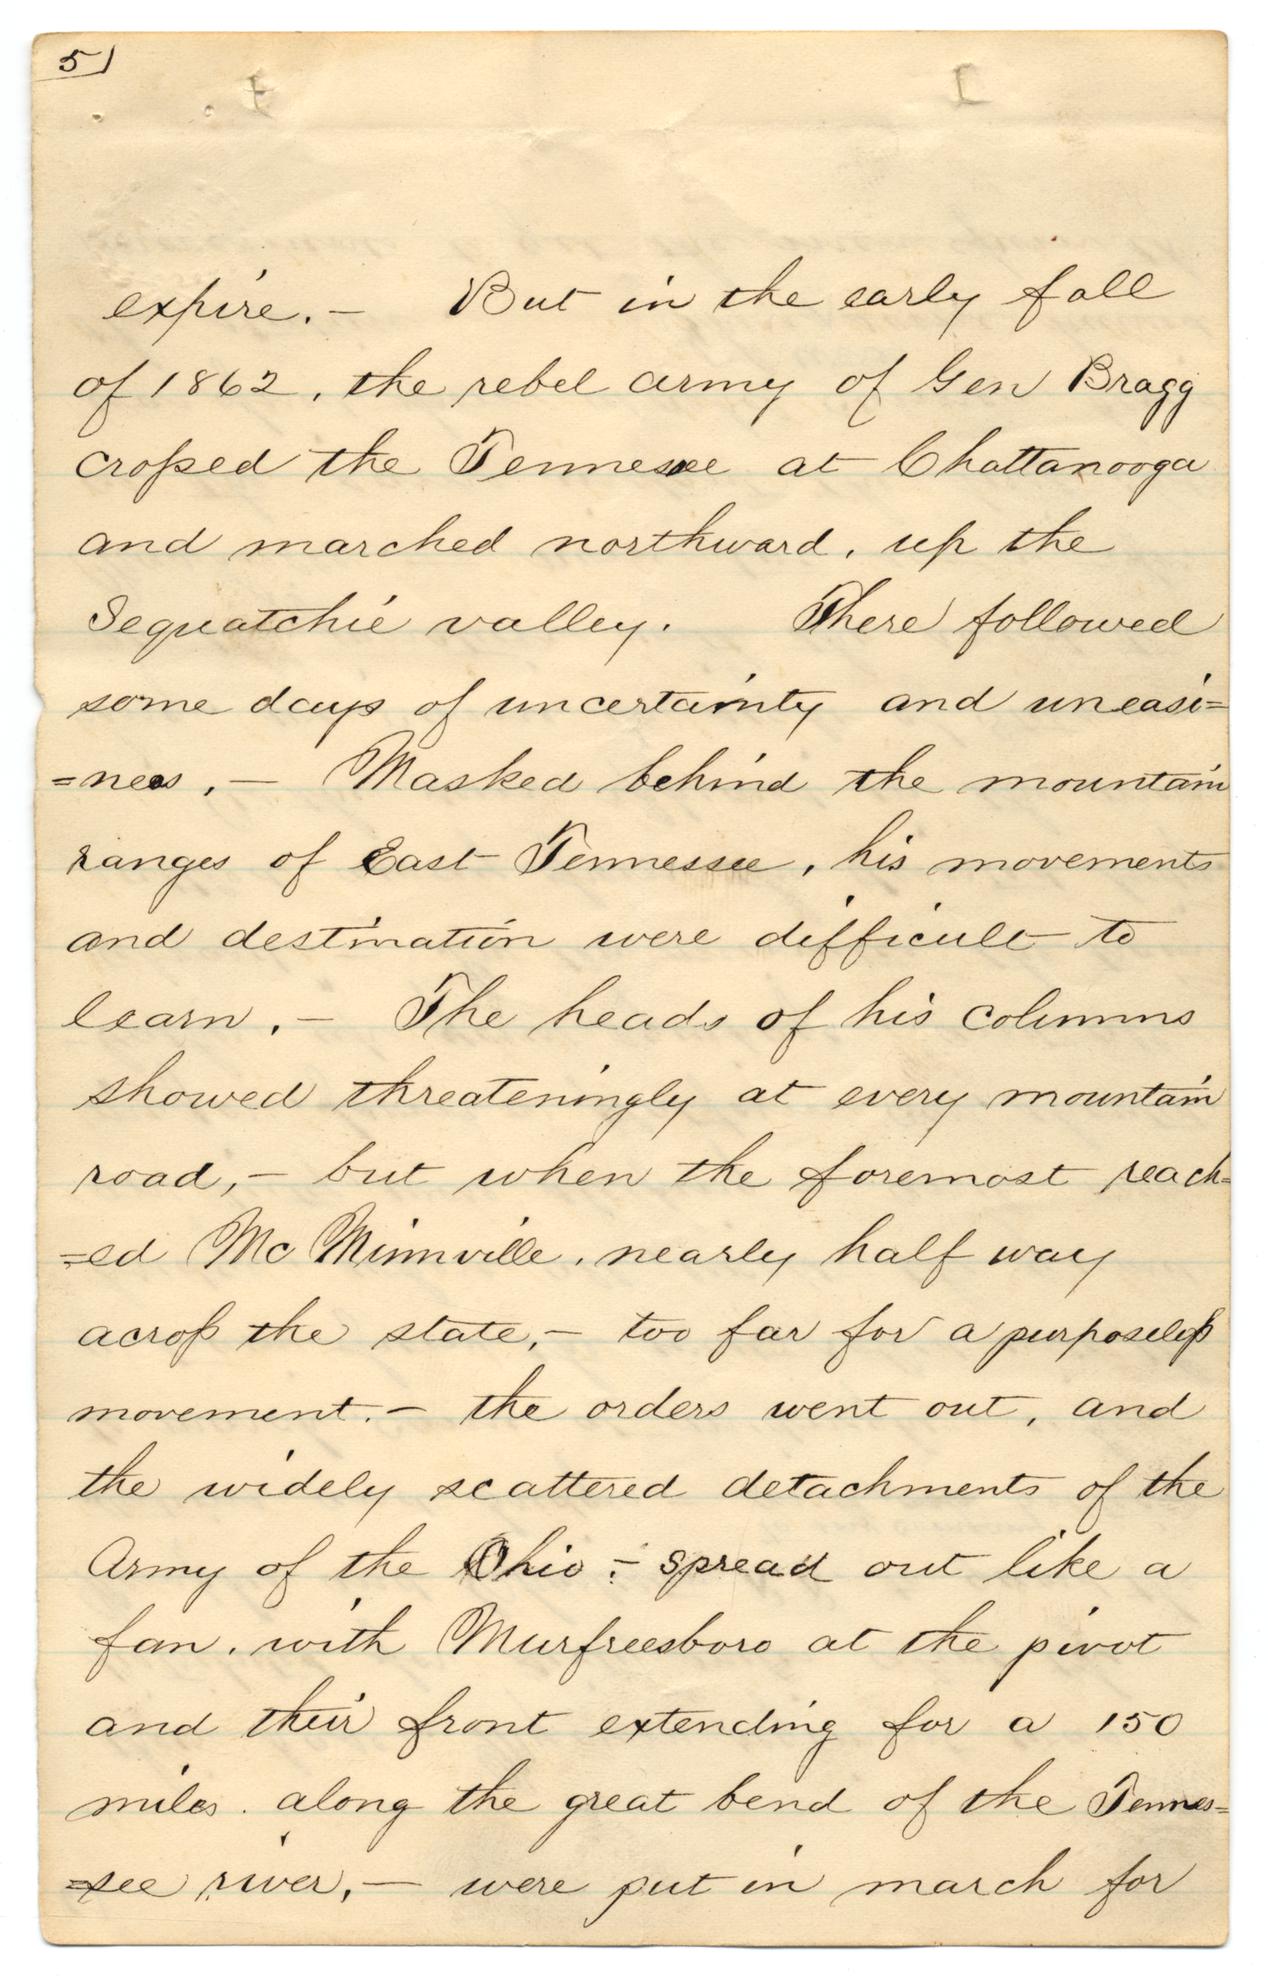 5)
expire. – But in the early fall
of 1862, the rebel army of Gen Bragg
crossed the Tennessee at Chattanooga
and marched northward, up the
Sequatchie valley. There followed
some days of uncertainty and uneasi=
=ness, – Masked behind the mountain
ranges of East Tennessee, his movements
and destination were difficult to
learn, – The heads of his columns
showed threateningly at every mountain
road, – but when the foremost reach=
=ed Mc Minnville, nearly half way
across the state, – too far for a purposeless
movement. – the orders went out, and
the widely scattered detachments of the
Army of the Ohio; – spread out like a
fan, with Murfreesboro at the pivot
and their front extending for a 150
miles, along the great bend of the Tennes=
=see river, – were put in march for